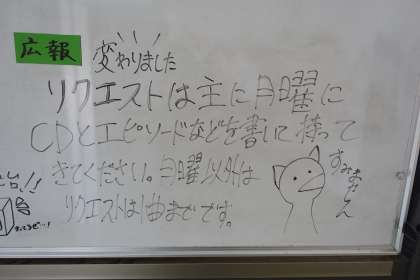 広報
変わりました
リクエストは主に月曜に
CDとエピソードなどを書いて持って
きてください。月曜以外は
リクエストは1曲までです。
すみません